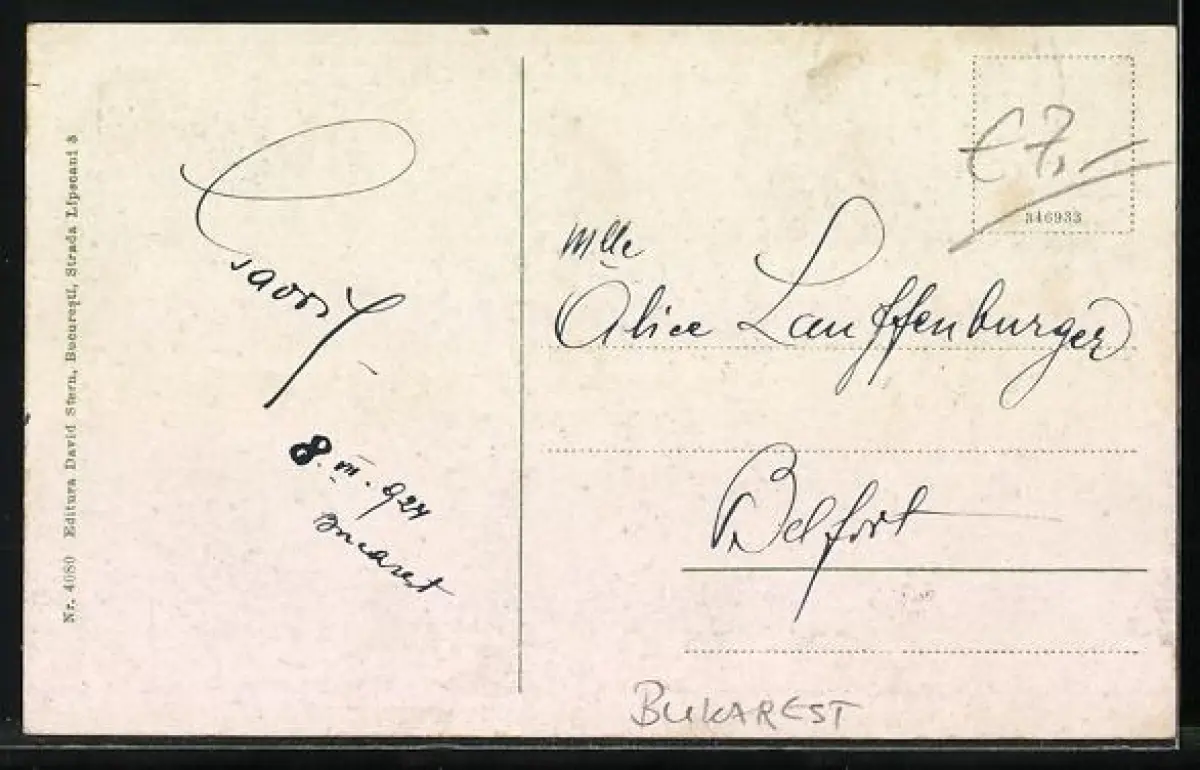 Nr. 4080 Editura David Stern, Bucureștĭ, Strada Lipscani 8
8. III. 924
Bucarest
€ 7,-
346933
Mlle
Alice Lauffenburger
Belfort
BUKAREST